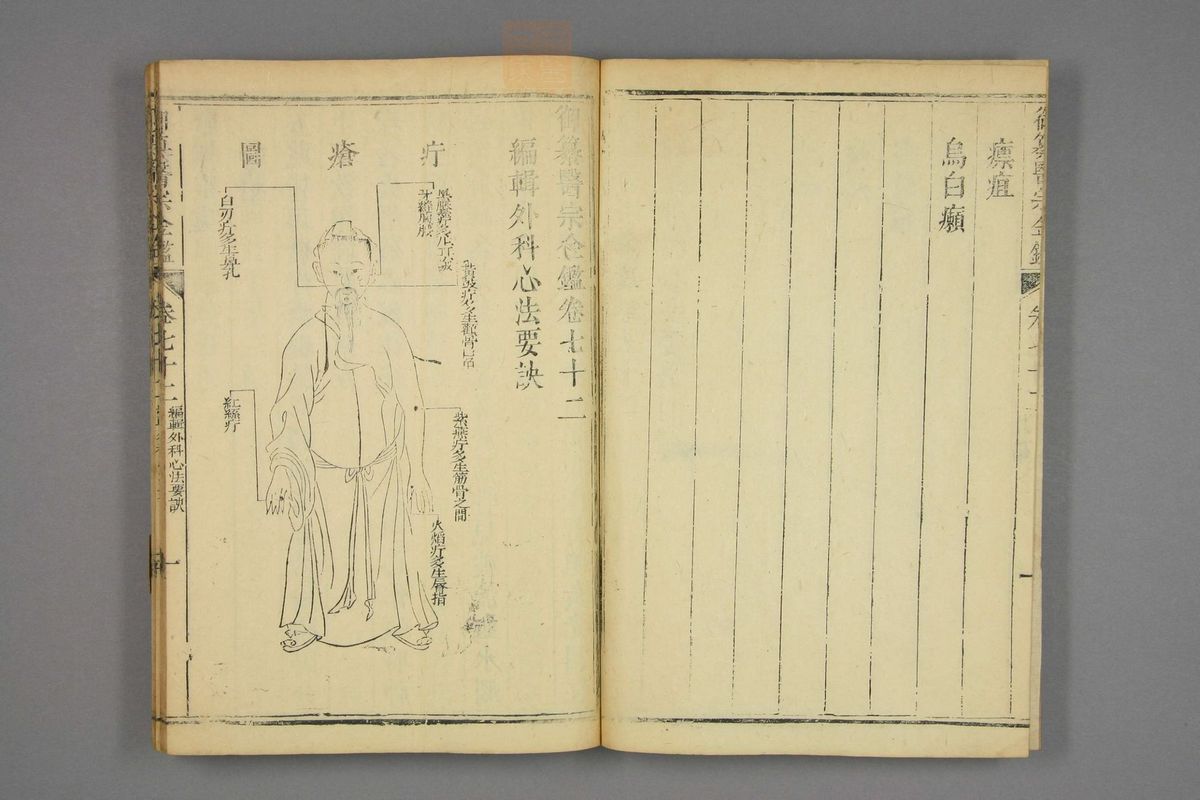 瘭疽
烏白癩
御纂醫宗金鑑卷七十二
編輯外科心法要訣
疔瘡圖
黑靨疔多生耳竅
牙縫胸腹
黃鼓疔多生顴骨口角
白刃疔多生鼻孔
紫燕疔多生筋骨之間
火焰疔多生唇指
紅絲疔
卷七十二
編輯外科心法要訣
一